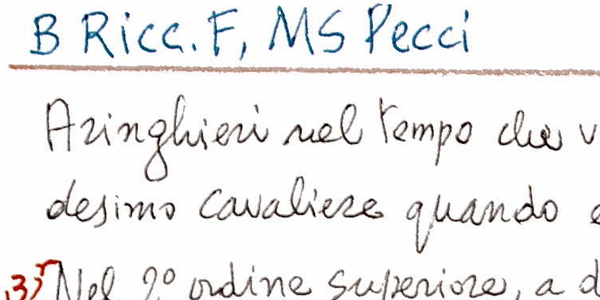 B Ricc. F, MS Pecci
Aringhieri nel tempo che v
desimo cavaliere quando
3) Nel 2º ordine superiore, a d